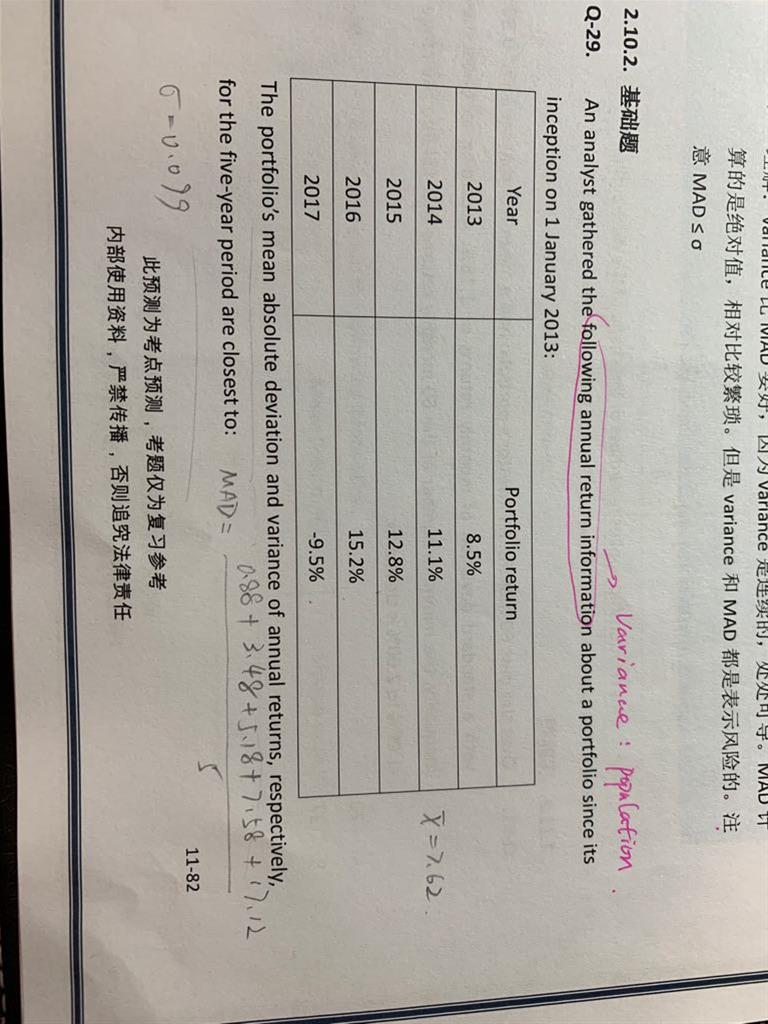 Variance 比 MAD 要好，因为 variance 是连续的，处处可导。MAD 计
算的是绝对值，相对比较繁琐。但是 variance 和 MAD 都是表示风险的。注
意 MAD ≤ σ
2.10.2. 基础题
→ Variance : population.
Q-29. An analyst gathered the following annual return information about a portfolio since its
inception on 1 January 2013:
Year Portfolio return
2013 8.5%
2014 11.1%
2015 12.8%
2016 15.2%
2017 -9.5%
x̄ = 7.62.
The portfolio's mean absolute deviation and variance of annual returns, respectively,
for the five-year period are closest to:
MAD = 0.88 + 3.48 + 5.18 + 7.58 + 17.12
5
σ = 0.099
11-82
此预测为考点预测，考题仅为复习参考
内部使用资料，严禁传播，否则追究法律责任